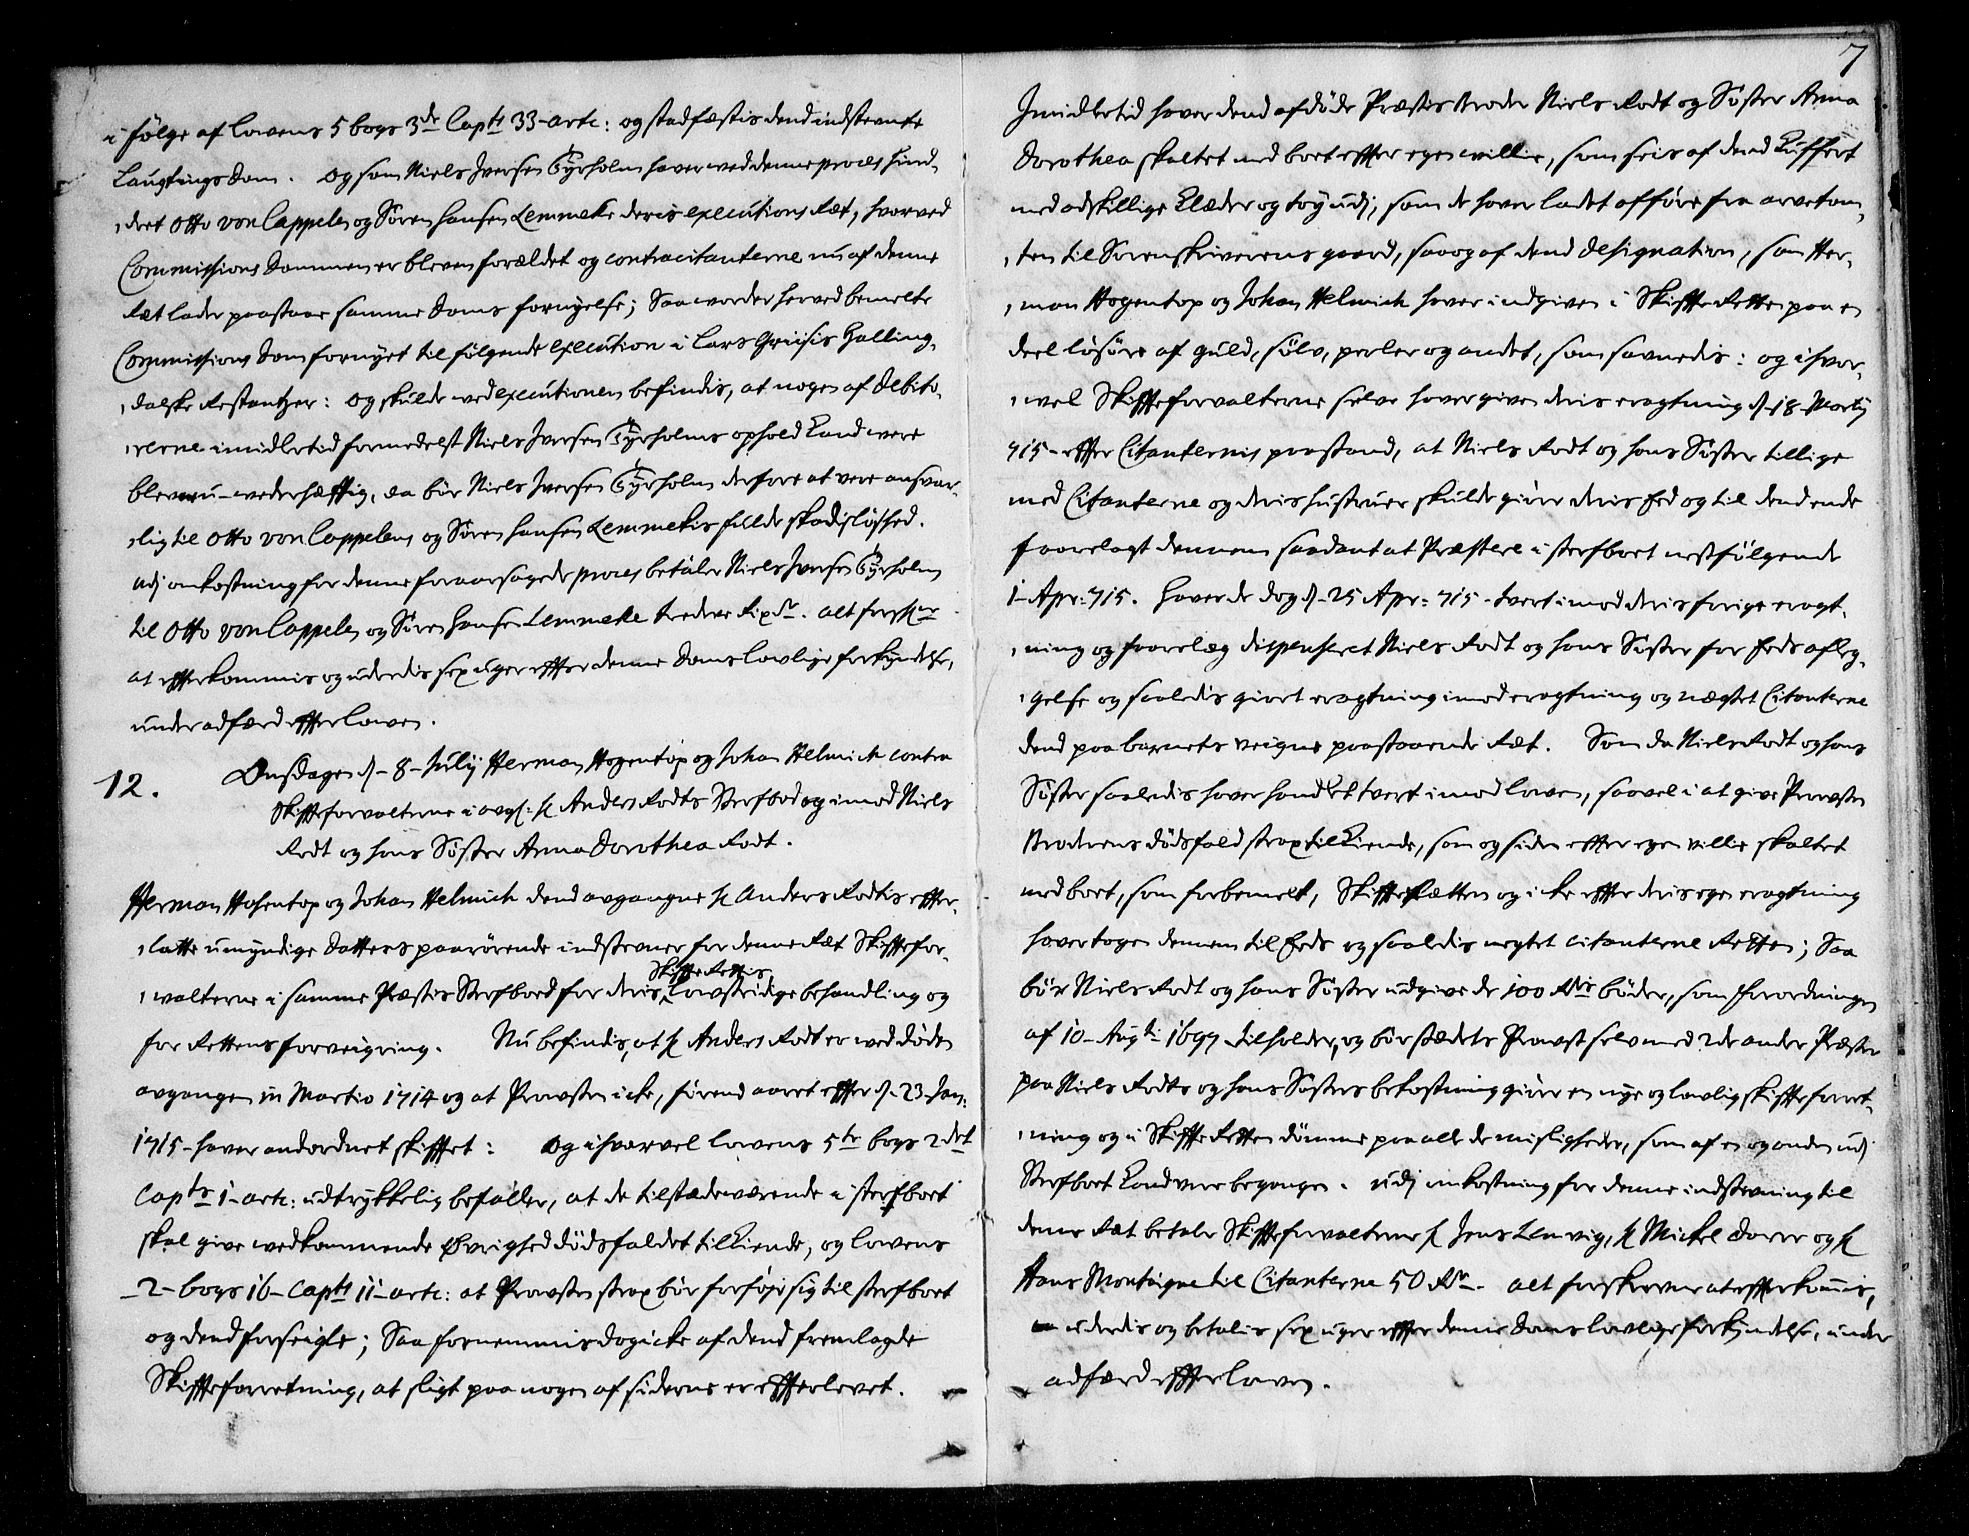 i følge af lowens 5 bogs 3de Capts 33-artc: og stadfæstis dend indstevnte
Laugtings dom. Og som Niels Jversen Tyrholm haver wed denne proces hind-
,dret Otto von Cappelen og Søren Hansen Lemmeke deris executions Ræt, hvorved
Commissions dommen er bleven forældet og contracitanterne nu af denne
Ræt lader paastaae samme doms fornyelse; Saa worder herved bemelte
Commissions dom fornyet til følgende execution i Lars Griisis Halling-
,dalske Restantzer: Og skulde wed executionen befindis, at nogen af debito-
,rerne imidlertid formedelst Niels Jversen Tyrholms ophold kand were
bleven u-wederhæfftig, da bør Niels Jversen Tyrholm derfore at vere answar-
,lig til Otto von Cappelens og Søren Hansen Lemmekis fulde skadisløshed.
Udj omkostning for denne foraarsagede proces betaler Niels Jversen Tyrholm
til Otto von Cappelen og Søren Hansen Lemmeke tredeve Rixdr. alt forskr
at efterkommis og uderedis sex uger effter denne doms lovlige forkyndelse,
under adfærd effter lowen.
12. Onsdagen d. 8 Julij Herman Hogentop og Johan Helmich contra
Skiffteforvalterne i avgl: hr Anders Rodts Sterfbod og imod Niels
Rodt og hans Søster Anna Dorothea Rodt.
Herman Hosentop og Johan Helmich dend avgangne hr Anders Rodtis effter-
,latte umyndige datters paarørende indstevner for denne Ræt Skifftefor-
Skiffte Rettis
,walterne i samme Præstis Sterfboed for deris lowstridige behandling og
for Rettens forveigring. Nu befindis, at hr Anders Rodt er wed døden
avgangen in Martio 1714 og at Prowsten icke, førend aaret effter d. 23 Jan:
1715 haver andordnet skifftet: Og ihvorvel lowens 5te bogs 2det
Capts 1-artc: udtrykkelig befaller, at de tilstædewærende i sterfboet
skal give wedkommende Øvrighed dødsfaldet tilkiende, og lowens
2 bogs 16 Capts 11-artc: at Prowsten strax bør forføje sig til sterfboet
og dend forseigle; Saa fornemmis dog icke af dend fremlagde
Skiffteforretning, at sligt paa nogen af siderne er effterlevet.
7
Jmidlertid haver dend afdøde Præstis Broder Niels Rodt og Søster Anna
Dorothea skaltet med boet effter egen willie, som seis af dend Kuffert
med adskillige Klæder og tøy udj, som de haver ladet afføre fra arvetom-
,ten til Sorenskriverens gaard, saa og af dend designation, som Her-
,man Hogentop og Johan Helmich haver indgiven i Skiffte Retten paa en
deel løsøre af guld, sølv, perler og andet, som savnedis: og ihvor-
,wel Skiffteforvalterne selve haver given deris eragtning d. 18 Martij
715 effter Citanternis paastand, at Niels Rodt og hans Søster tillige
med Citanterne og deris hustruer skulde giøre deris Eed og til dend ende
foorelagt dennem saadant at Præstere i sterfboet nestfølgende
1 Apr: 715. Haver de dog d. 25 Apr: 715 tvert imod deris forige eragt-
,ning og foorelæg dispenseret Niels Rodt og hans Søster for Eeds afleg-
,gelse og saaledis giort eragtning imod eragtning og nægtet Citanterne
dend paa barnets veigne paastaaende Ræt. Som da Niels Rodt og hans
Søster saaledis haver handlet tvert imod lowen, saavel i at give Prowsten
Broderens dødsfald strax tilkiende, som og siden effter egen villie skaltet
med boet, som forbemelt, Skiffteretten og icke effter deris egen eragtning
haver tagen dennem til Eeds og saaledis negtet citanterne Retten; Saa
bør Niels Rodt og hans Søster udgive de 100 Rdrs bøder, som forordningen
af 10 Augti 1697 tilholder, og bør stædets Prowst selv med 2de andre Præster
paa Niels Rodts og hans Søsters bekostning giøre en nye og lowlig skiffteforret-
,ning og i Skiffte Retten dømme paa alle de misligheder, som af en og anden udj
Sterfboet kand vere begangen. Udj omkostning for denne indstevning til
denne Ræt betaler Skiffteforvalterne hr Jens Lemvig, hr Mickel Dorer og hr
Hans Montagne til Citanterne 50 Rdr. alt forskrevne at effterkomis,
uderedis og betalis sex uger effter denne doms lovlige forkyndelse, under
adfærd effter lowen.